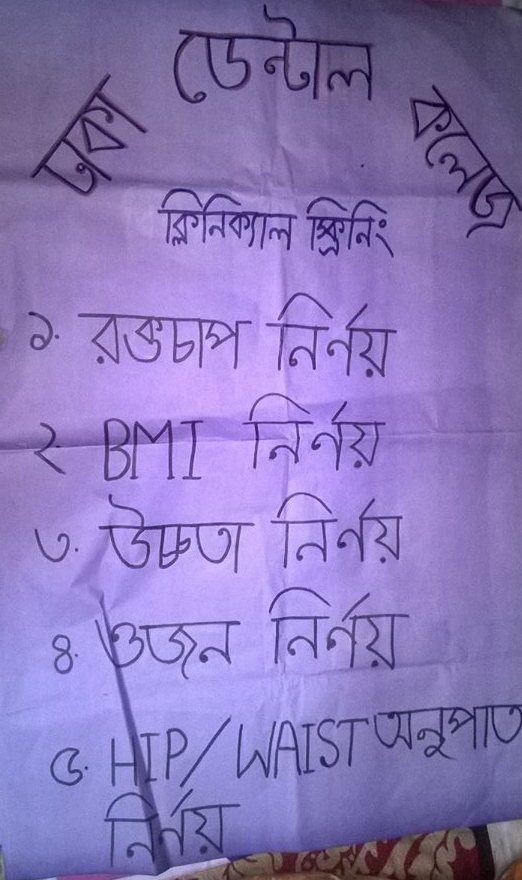 ঢাকা ডেন্টাল কলেজ
ক্লিনিক্যাল স্ক্রিনিং
১. রক্তচাপ নির্ণয়
২. BMI নির্ণয়
৩. উচ্চতা নির্ণয়
৪. ওজন নির্ণয়
৫. HIP/WAIST অনুপাত
নির্ণয়